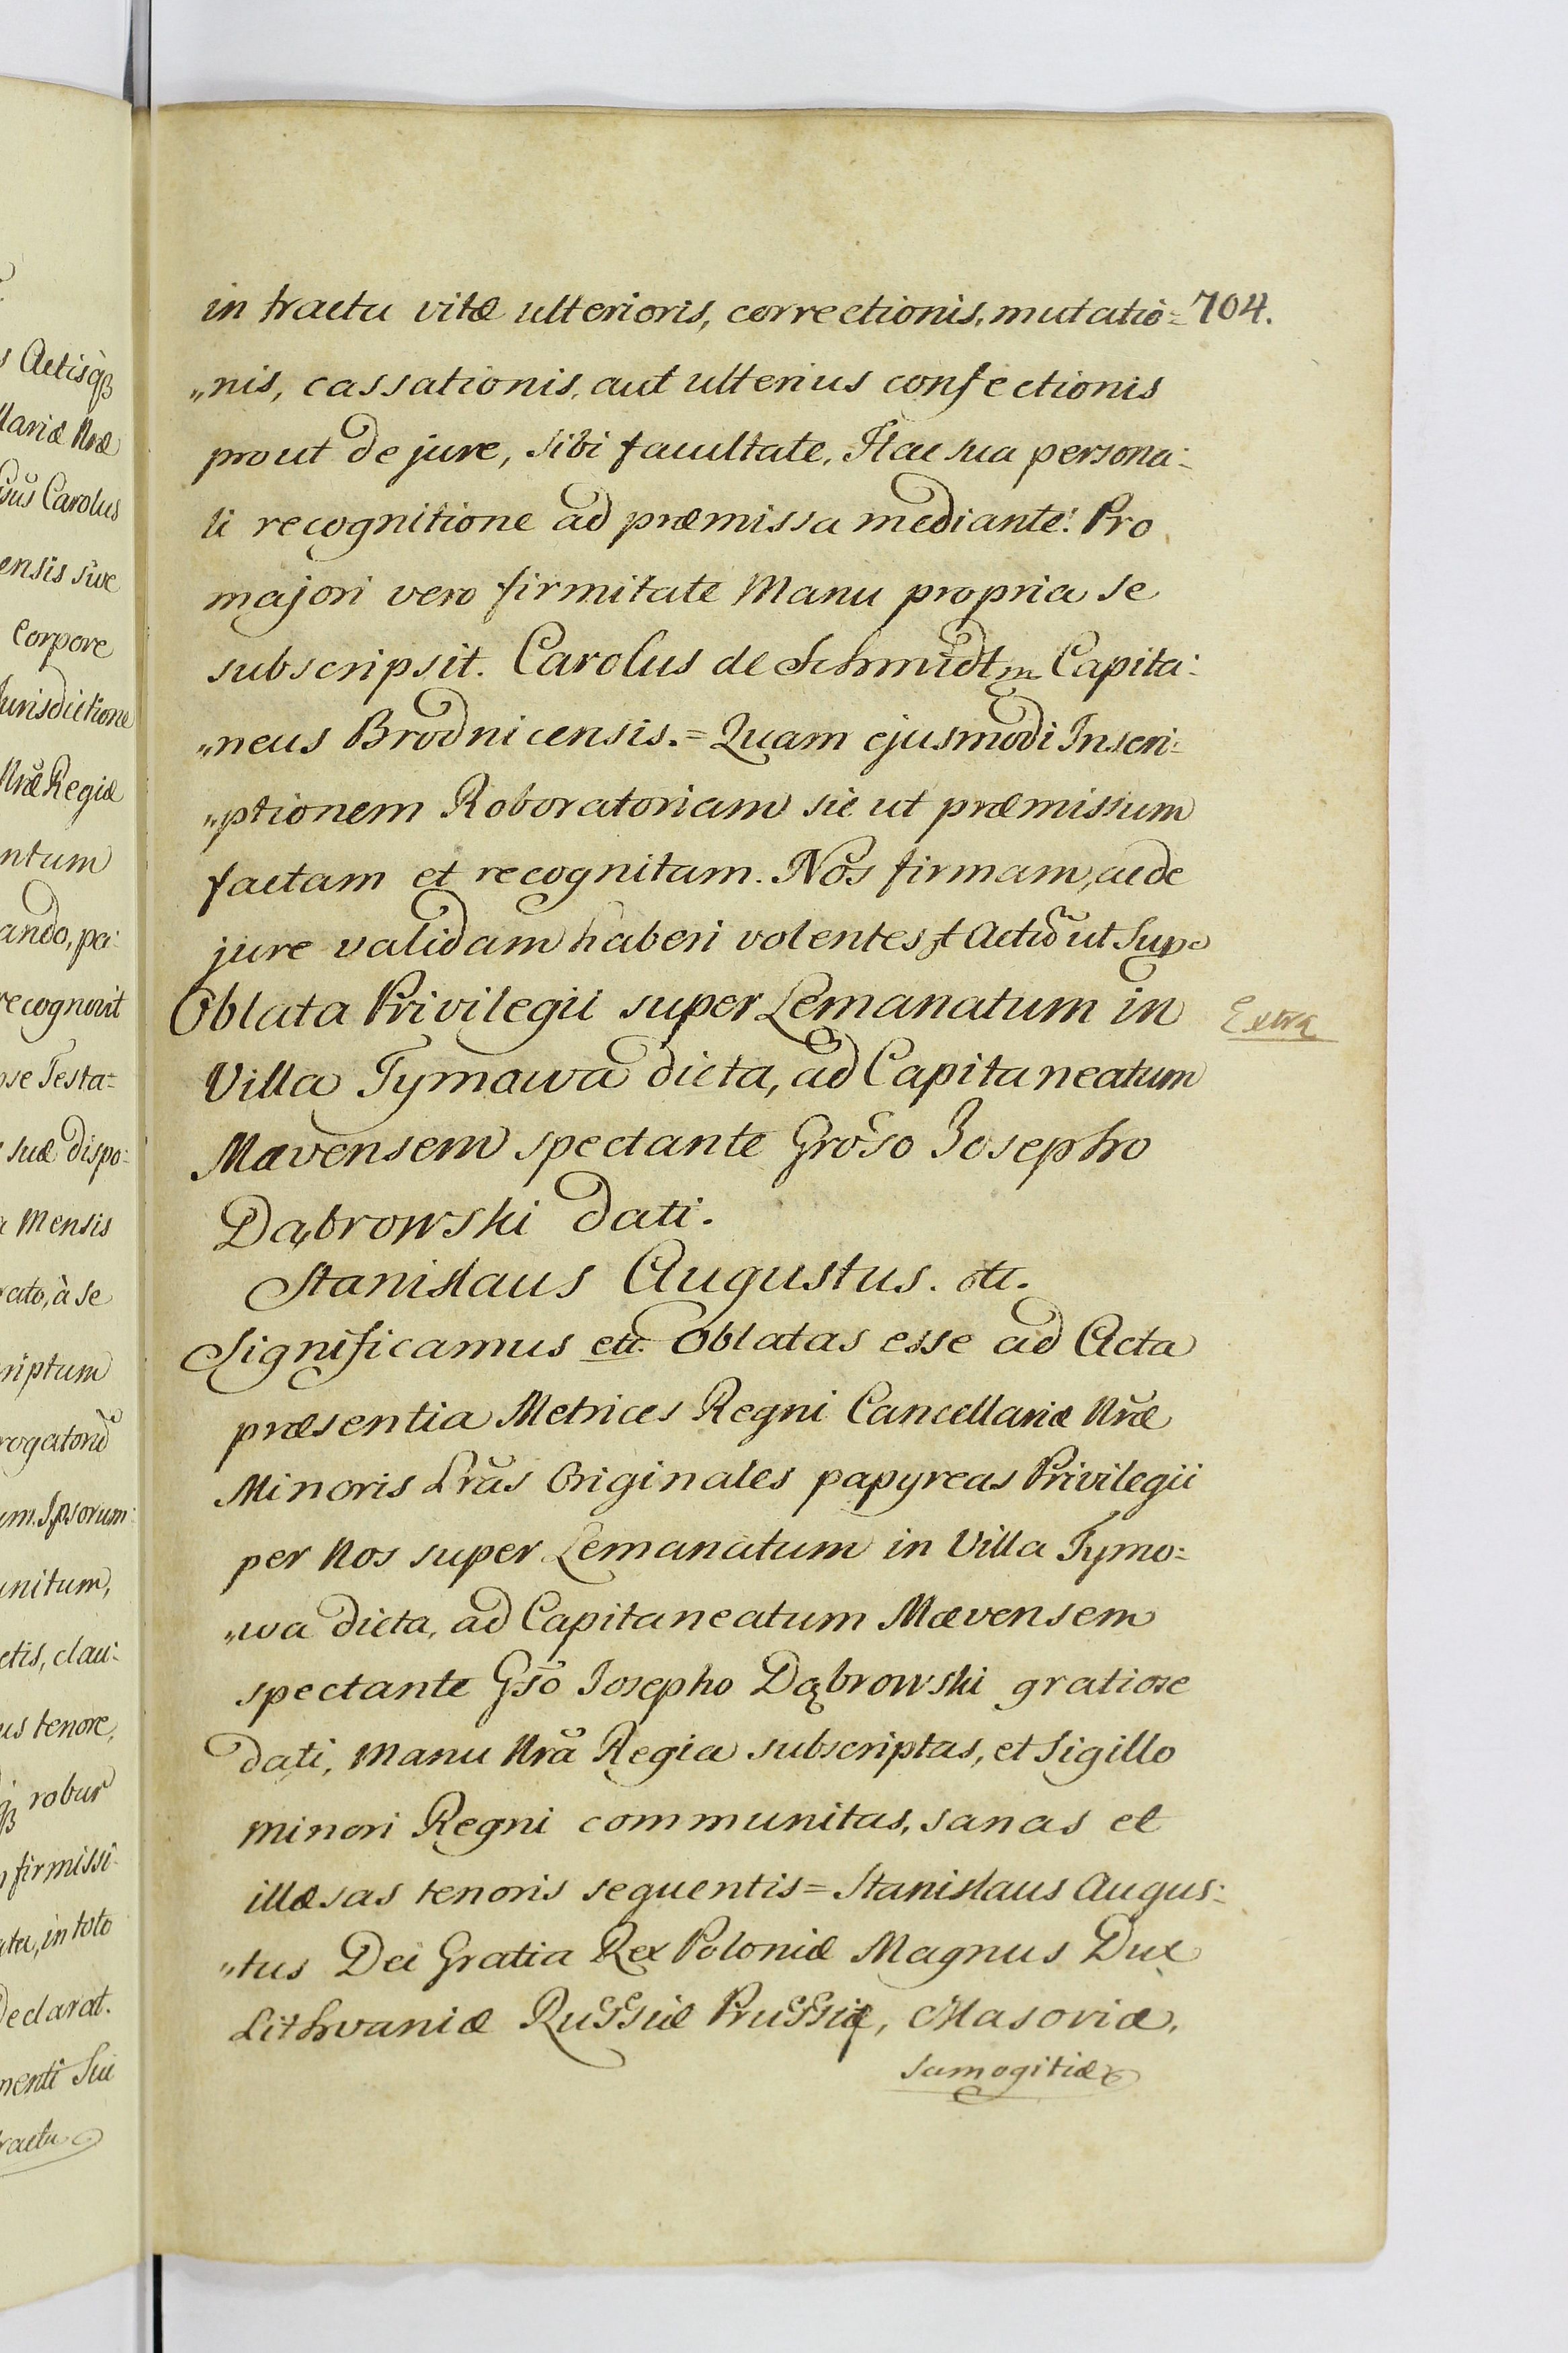 704.
in tractu vitæ ulterioris, correctionis, mutatio=
„nis, cassationis, aut ulterius confectionis
prout de jure, sibi facultate. Hac sua persona-
li recognitione ad præmissa mediante: Pro
majori vero firmitate Manu propria se
subscripsit. Carolus de Schmidt m Capita:
„neus Brodnicensis.= Quam ejusmodi Inscri:
„ptionem Roboratoriam sic ut præmissum
factam et recognitam. Nos firmam, ac de
jure validam haberi volentes ut Supo
Oblata Privilegii super Lemanatum in
Extra
Villa Tymawa dicta, ad Capitaneatum
Mævensem spectante Groso Josepho
Dąbrowski dati.
Stanislaus Augustus. etc.
Significamus etc. Oblatas esse ad Acta
præsentia Metrices Regni Cancellariæ Nræ
Minoris Lras Originales papyreas Privilegii
per Nos super Lemanatum in Villa Tymo:
„wa dicta, ad Capitaneatum Mævensem
spectante Gso Josepho Dąbrowski gratiose
dati, Manu Nra Regia subscriptas, et Sigillo
minori Regni communitas, sanas et
illæsas tenoris sequentis= Stanislaus Augus:
„tus Dei Gratia Rex Poloniæ Magnus Dux
Lithvaniæ Russiæ Prussiæ, Masoviæ,
Samogitiæ
s Actisq
llariæ Nræ
sus Carolus
ensis sive
Corpore
Jurisdictione
Nræ Regiæ
ntum
ando, pa:
recognovit
pse Testa=
suæ dispo:
a Mensis
rato, à se
riptum
rogatoru
um. Ipsorum:
unitum,
ctis, clau:
us tenore,
robur
firmissi
in toto
Declarat.
menti Sui
ractu